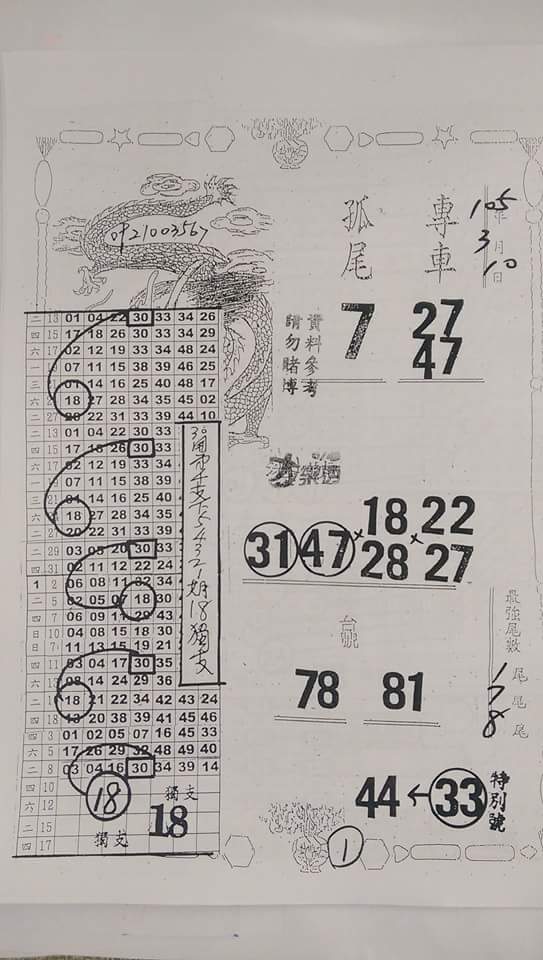 孤尾 專車
105年
3月
10日
7 27
47
資料參考
請勿賭博
二 13 01 04 22 30 33 34 26
四 15 17 18 26 30 33 34 29
六 17 02 12 19 33 34 48 24
07 11 15 38 39 46 25
14 16 25 40 48 17
18 27 28 34 35 45 02
22 31 33 39 44 10
二 13 01 04 22 30 33
四 15 17 18 26 30 33
02 12 19 33 34
07 11 15 38 39
14 16 25 40
18 27 28 34 35
20 22 31 33 39
二 29 03 08 20 30 33
四 31 02 11 12 22 24
1 2 06 08 11 32 34
二 5 02 05 07 18 30
四 7 06 09 11 29 43
日 10 04 08 15 18 30
11 13 15 19 21
四 11 03 04 17 30 35
六 13 08 14 24 29 36
18 21 22 34 42 43 24
四 18 13 20 38 39 41 45 46
四 3 01 02 05 07 16 45 33
六 5 17 26 29 32 48 49 40
二 8 03 04 16 30 34 39 14
四 10
六 12
二 15
四 17
18 獨支
獨支 18
18獨支
樂透
31 47 × 18 × 22
28 27
台號
78 81
最強尾數
1尾
7尾
8尾
44 ← 33 特別號
1